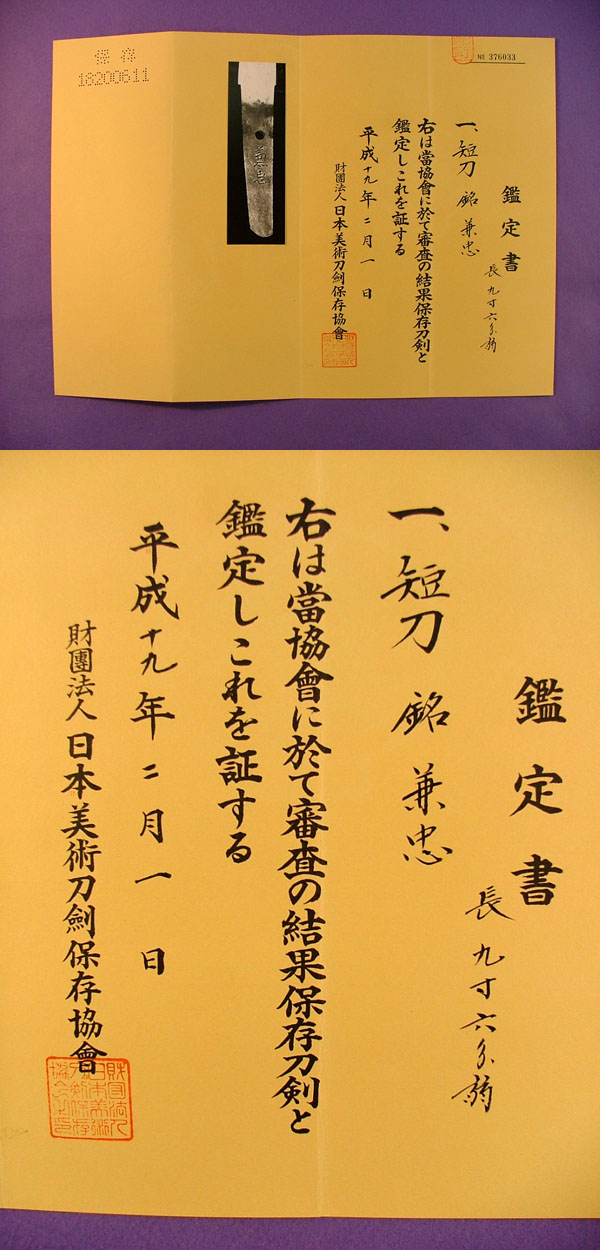 保存
18200611
兼忠
№ 376033
鑑定書
一、短刀 銘 兼忠
長九寸六分弱
右は當協會に於て審査の結果保存刀剣と
鑑定しこれを証する
平成十九年二月一日
財團法人日本美術刀劍保存協會
鑑定書
一、短刀 銘 兼忠
長九寸六分弱
右は當協會に於て審査の結果保存刀剣と
鑑定しこれを証する
平成十九年二月一日
財團法人日本美術刀劍保存協會